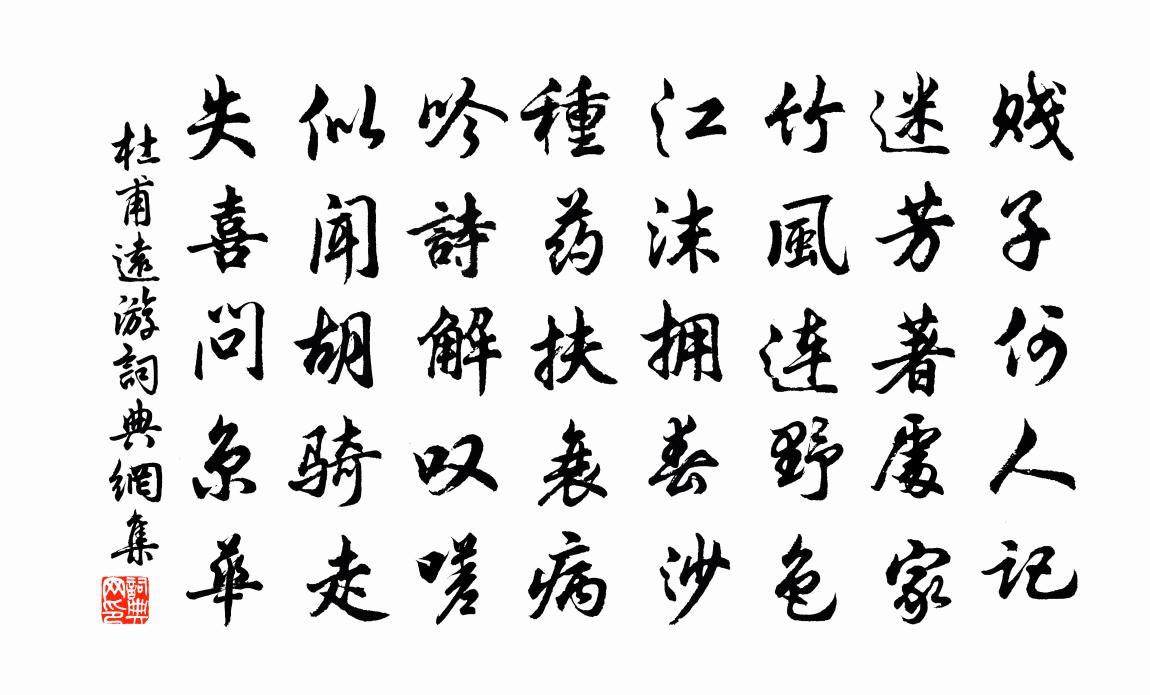 贱子何人记
迷芳著處家
竹風连野色
江沫拥春沙
種药扶衰病
吟詩解叹嗟
似闻胡骑走
失喜问京華
杜甫遠游詞典網集
詞典网印